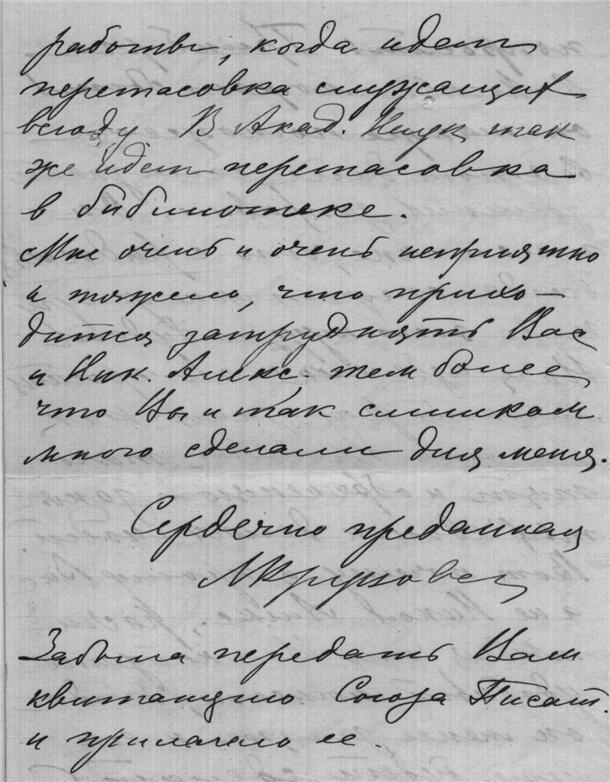 работы, когда идет
перетасовка служащих
всюду. В Акад. Наук так
же идет перетасовка
в библиотеке.
Мне очень и очень неприятно
и тяжело, что прихо-
дится затруднять Вас
и Ник. Алекс. тем более
что Вы и так слишком
много сделали для меня.
Сердечно преданная
Забыла передать Вам
квитанцию Союза Писат.
и прилагаю ее.